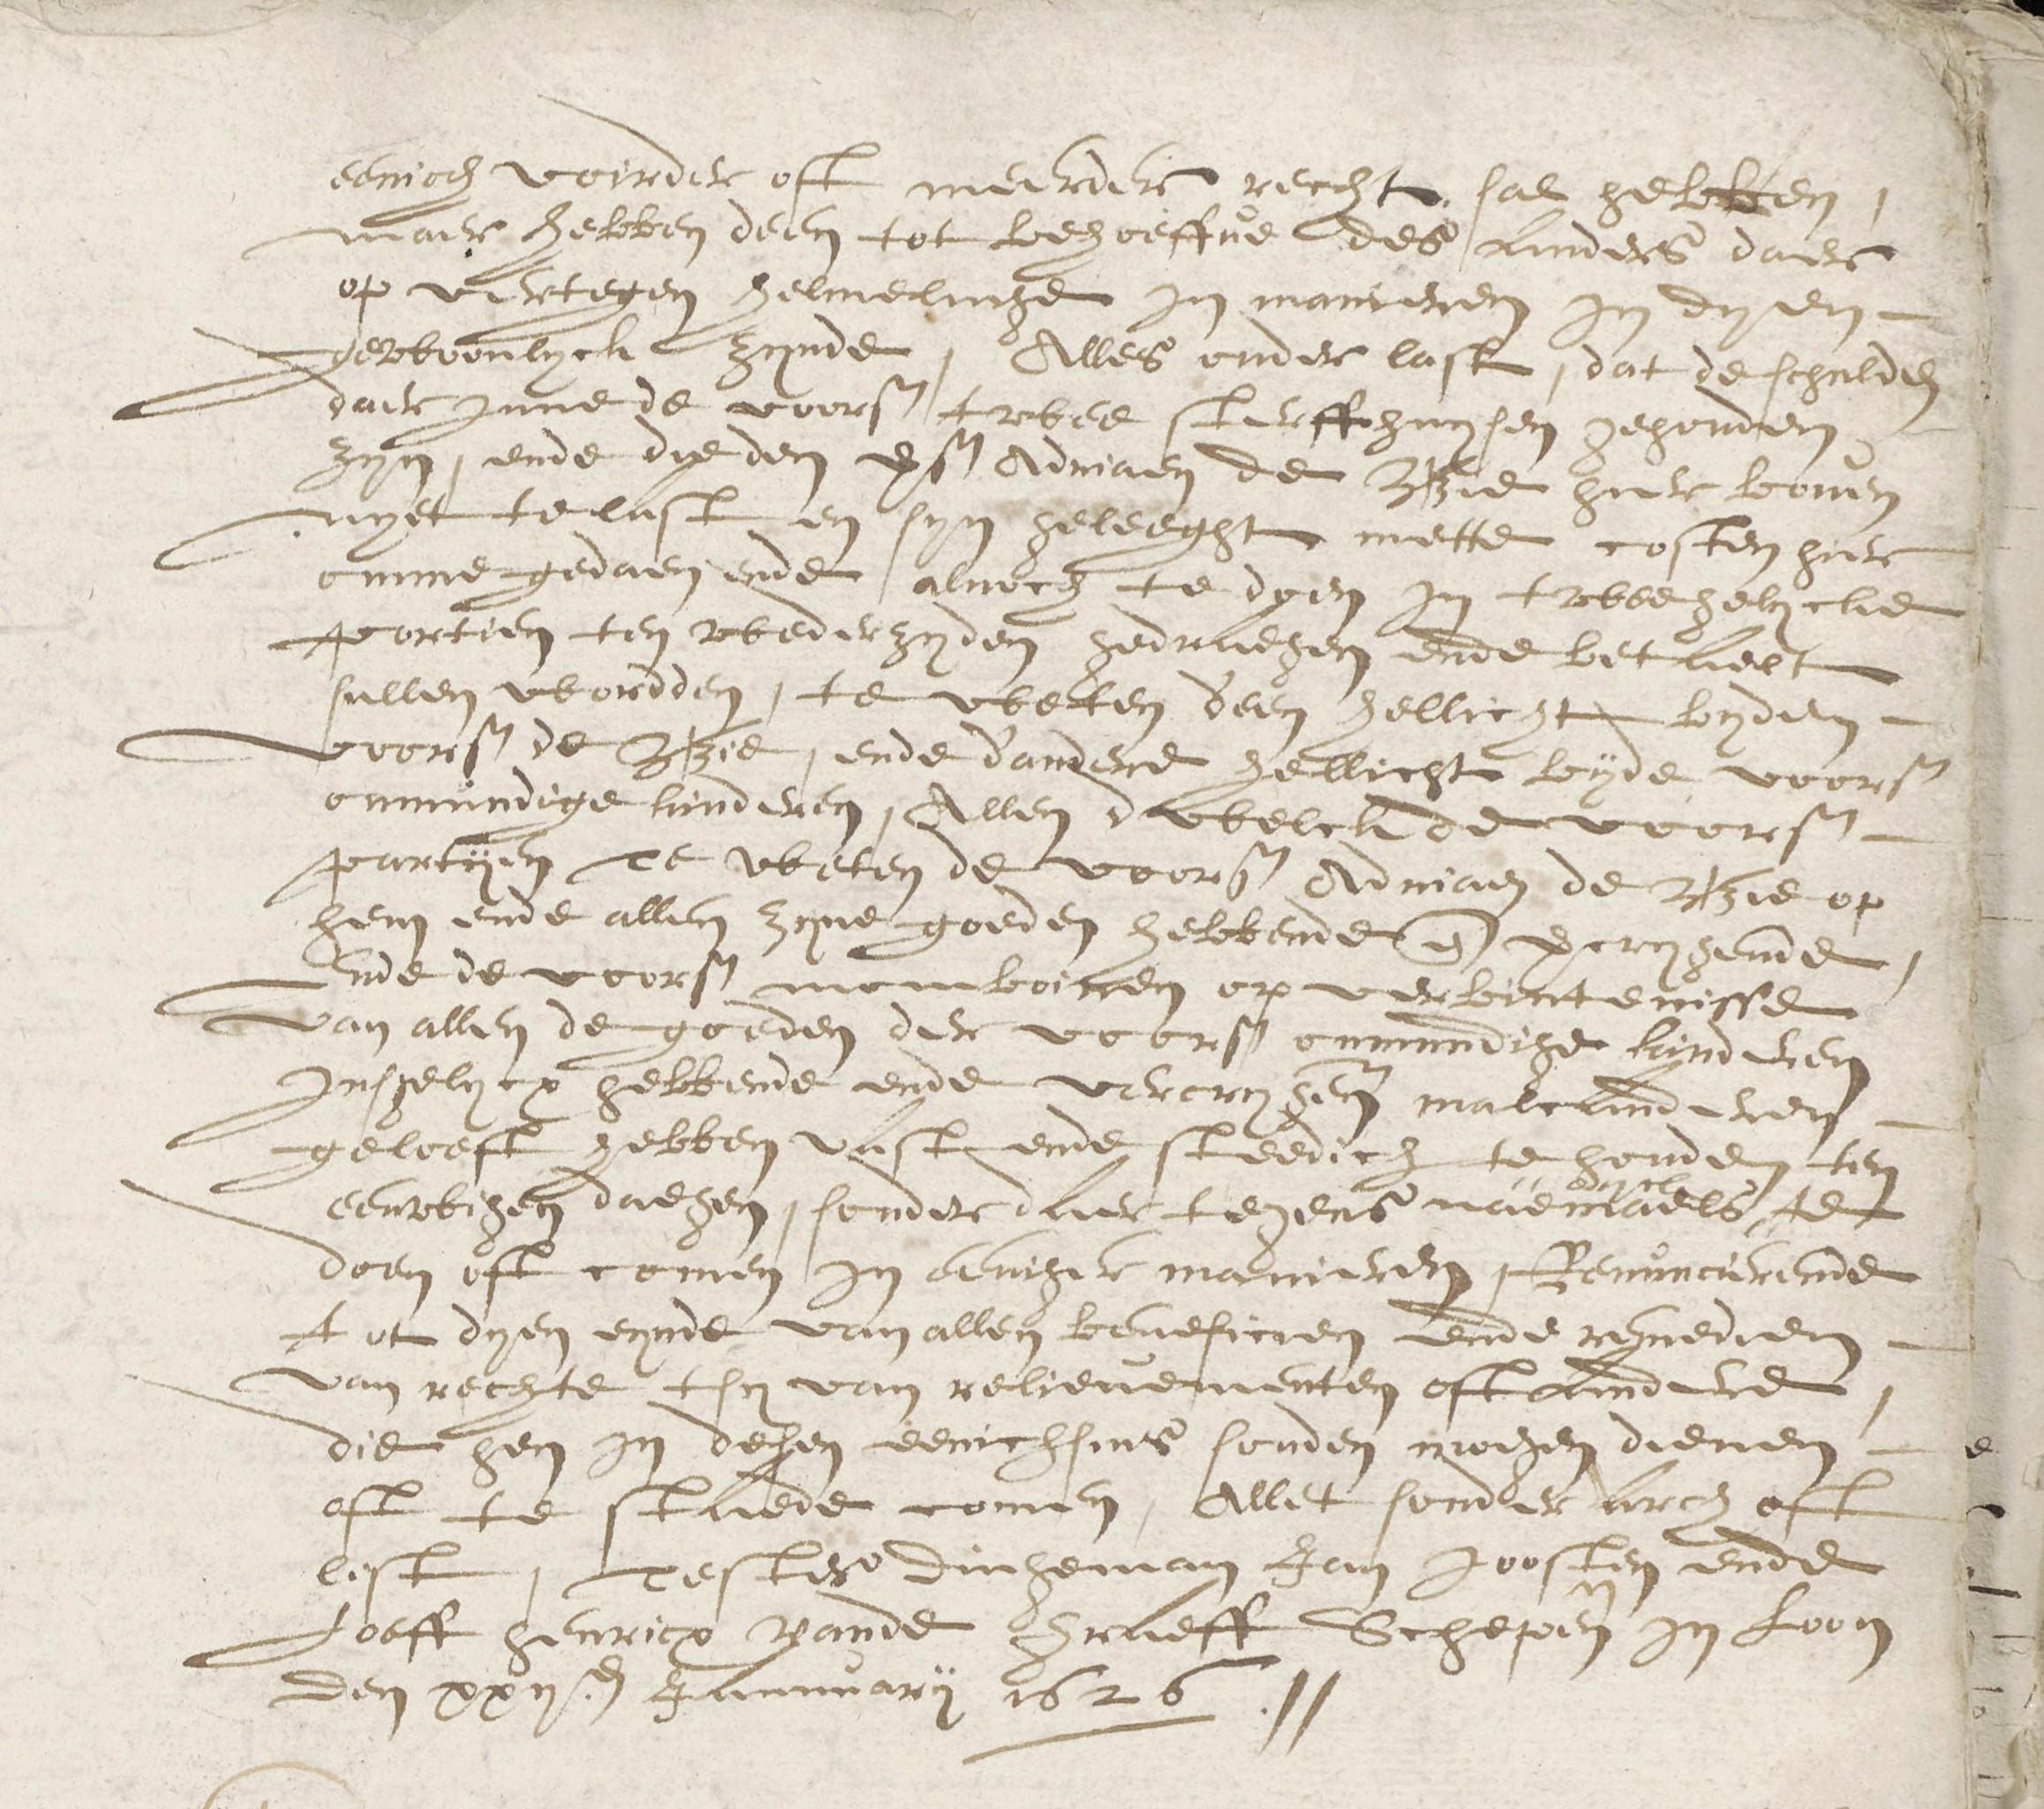 eenich voirder oft meerder recht sal hebben,
maer hebben deen tot behoeffve des anders daer
op vertegen helmelinge in manieren in dyen
gewoonlyck zynde, Alles onder last, dat de schulden
daer inne de voors twee sterffhuysen gehouden
zyn, ende dye den vs Adriaen de hier boven
nyet te last en syn geleeght mette costen hier
omme gedaen ende alnoch te doen in twee gelycke
portien ten wederzyden gedraegen ende betaelt
sullen wordden, te weten deen hellicht byden
voors de , ende dandere hellicht byde voors
onmundige kinderen, Allen dwelck de voors
partijen Te weten de voors Adriaen de op
hem ende allen zyne goeden hebbende en vercrygende,
Ende de voors momboiren op verbintenisse
van allen de goeden der voors onmundige kinderen
insgelycx hebbende ende vercrygen malcanderen
geloeft hebben vast ende steedich te houden ten
eenwigen daegen, sonder daer tegens naemaels te
doen oft comen in eeniger manieren, Renuncierende
tot dyen eynde van allen beneficien ende remedien
van rechte tsy van relievementen oft andere,
die hen in desen eenichsins souden mogen dienen
oft te staede comen, Allet sonder arch oft
list, Testes Dingeman Jan Joosten ende
Loeff Henricx vande Graeff Schepen in Loon
Den xxij Januarij 1626 //